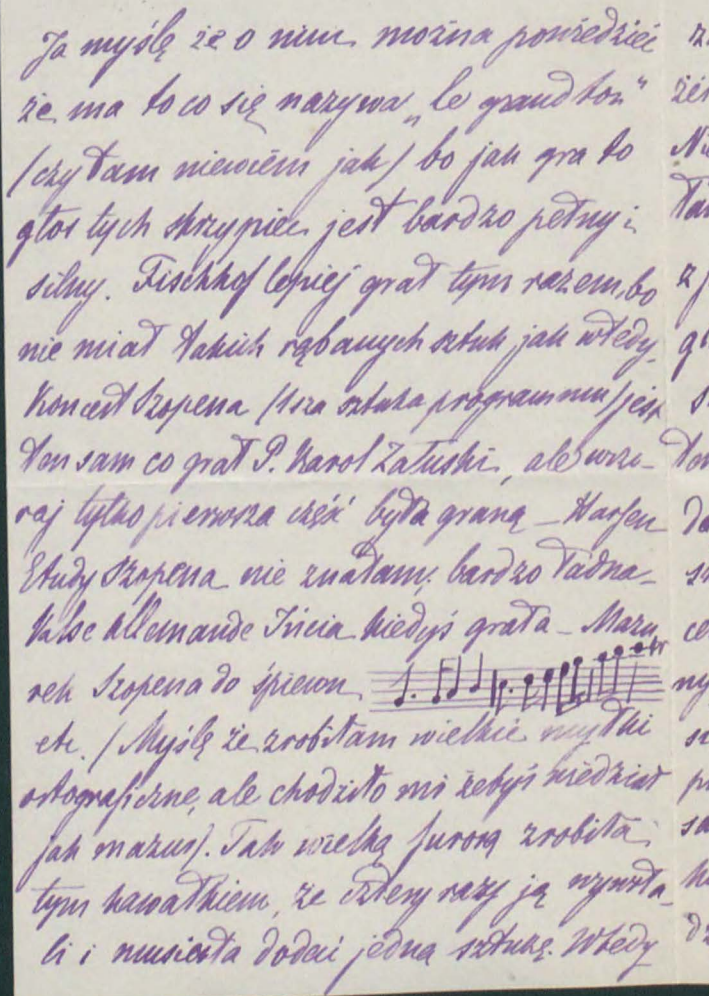 Ja myślę że o nim można powiedzieć
że ma to co się nazywa „le grand ton"
/czytam niewiem jak/ bo jak gra to
głos tych skrzypiec jest bardzo pełny i
silny. Fischhof lepiej grał tym razem, bo
nie miał takich rąbanych sztuk jak wtedy.
Koncert Szopena /1sza sztuka programmu/ jest
ten sam co grał P. Karol Załuski, ale wczo-
raj tylko pierwsza część była graną – Harfen
Etudy Szopena nie znałam; bardzo ładna –
Valse Allemande Incia kiedyś grała – Mazu
rek Szopena do śpiewu
etc. /Myślę że zrobiłam wielkie myłki
ortograficzne, ale chodziło mi żebyś wiedział
jak mazur/. Tak wielką furorę zrobiła
tym kawałkiem, że cztery razy ją wywoła-
li i musiała dodać jedną sztukę. Wtedy